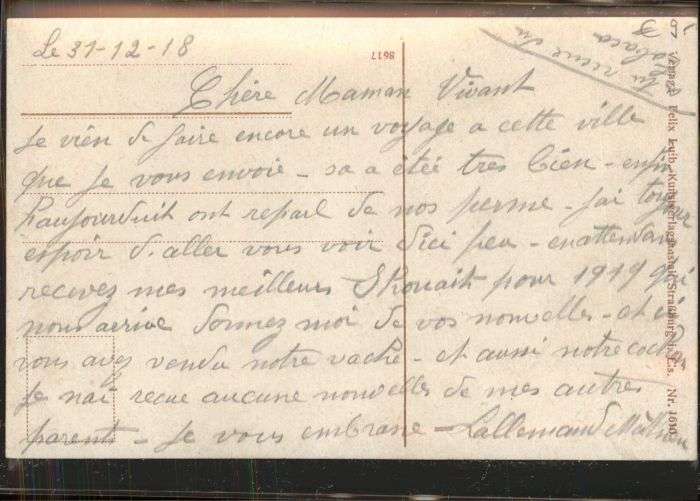 Le 31-12-18
8617
Chère Maman Vivant
Je vien de faire encore un voyage a cette ville
que Je vous envoie - sa a étéé très bien - enfin
haujourduit ont reparl de nos perme - J'ai toujour
espoir d'aller vous voir d'ici peu - en attendant
recevez mes meilleurs Shouait pour 1919 qui
nous arrive donnez moi de vos nouvelles - et si
vous avez vendu notre vache - et aussi notre coch
Je nai recue aucune nouvelles de mes autres
parents - Je vous embrasse - Lallemand
tu
tabaca
Verlag Felix Luib, Kunstverlagsanstalt, Strassburg i. Els. Nr.